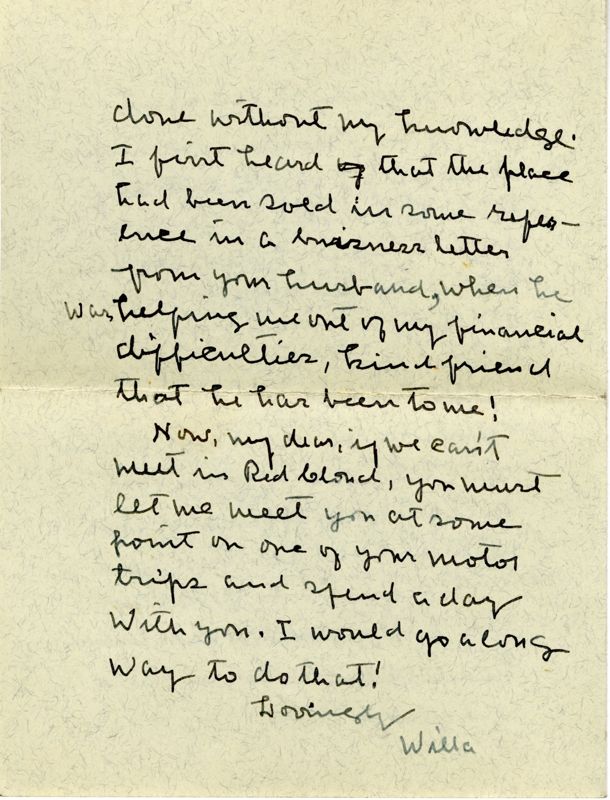 done without my knowledge.
I first heard that the place
had been sold in some refer-
ence in a business letter
from your husband, when he
was helping me out of my financial
difficulties, kind friend
that he has been to me!
Now, my dear, if we can't
meet in Red Cloud, you must
let me meet you at some
point on one of your motor
trips and spend a day
with you. I would go a long
way to do that!
Lovingly
Willa